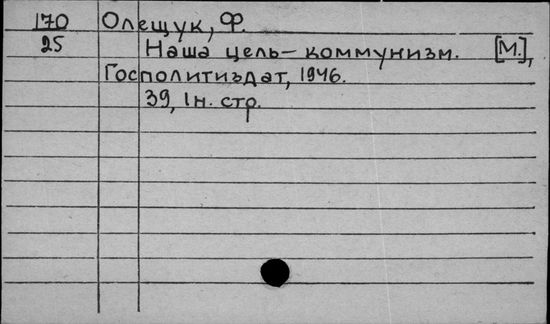 170 Олещук, Ф.
25 Наша цель – коммунизм. [М.],
Госполитиздат, 1946.
39, 1 н. стр.